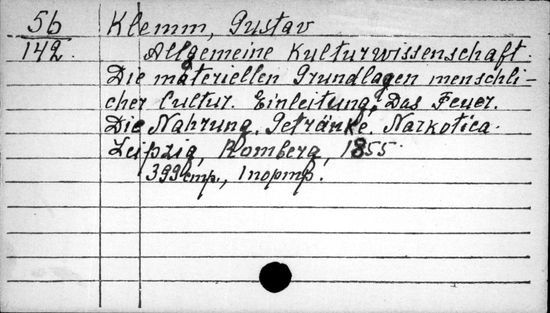 56 Klemm, Gustav
142. Allgemeine Kulturwissenschaft.
Die materiellen Grundlagen menschli-
cher Cultur. Einleitung, Das Feuer.
Die Nahrung. Getränke. Narkotica.
Leipzig, Romberg, 1855.
399 стр., 1 портр.